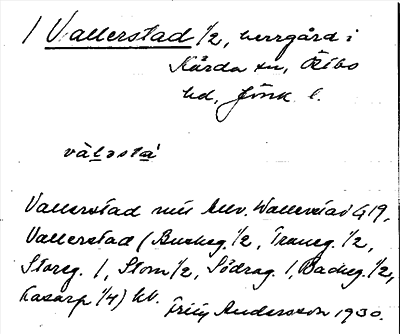 1 Vallerstad 1/2, herrgård i
Kärda sn, Östbo
hd, Jönk. l.
välǝstá
Vallerstad mtl Allv. Wallerstad G19,
Vallerstad (Buskeg. 1/2, Traneg. 1/2,
Storeg. 1, Stom 1/2, Södrag. 1, Backeg. 1/2,
Kasarp 1/4) hd.
Frith Andersson 1930.